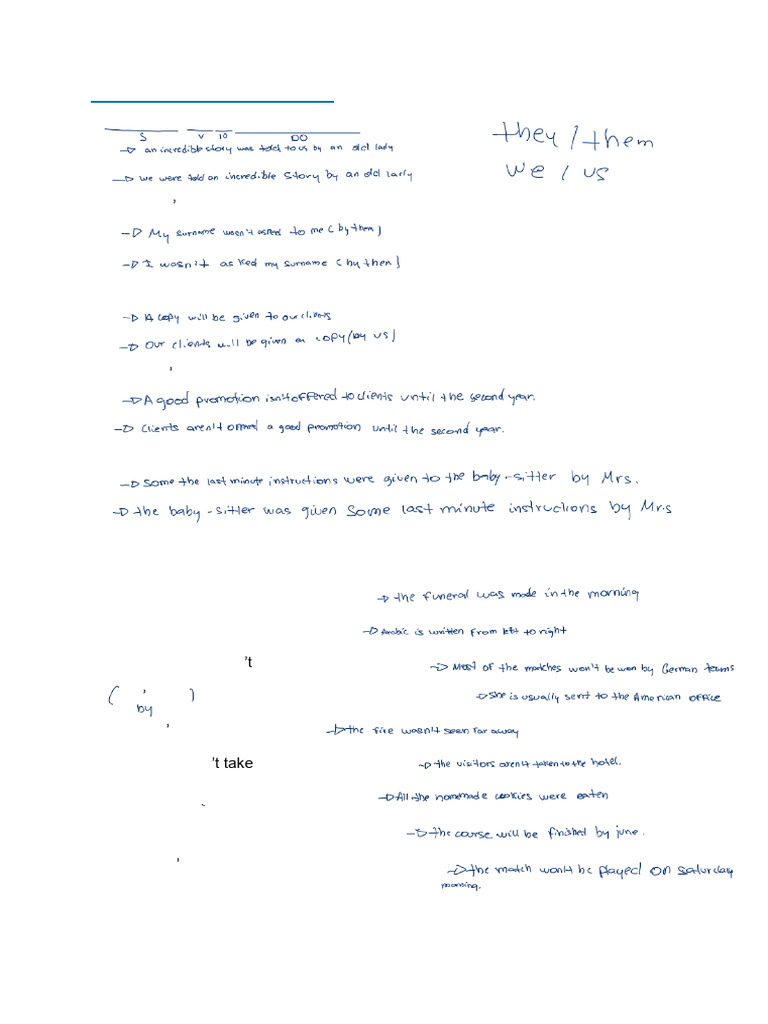 S V IO DO
they / them
-> an incredible story was told to us by an old lady
we / us
-> we were told an incredible story by an old lady
,
-> My surname wasn't asked to me (by them)
-> I wasn't asked my surname (by them)
-> A copy will be given to our clients
-> Our clients will be given a copy (by us)
,
-> A good promotion isn't offered to clients until the second year.
-> Clients aren't offered a good promotion until the second year.
-> Some the last minute instructions were given to the baby-sitter by Mrs.
-> the baby-sitter was given some last minute instructions by Mrs
-> the funeral was made in the morning
-> Arabic is written from left to right
't
-> Most of the matches won't be won by German teams
( , )
-> She is usually sent to the American office
by
,
-> the fire wasn't seen far away
't take
-> the visitors aren't taken to the hotel.
-> All the homemade cookies were eaten
`
-> the course will be finished by june.
,
-> the match won't be played on saturday
morning.